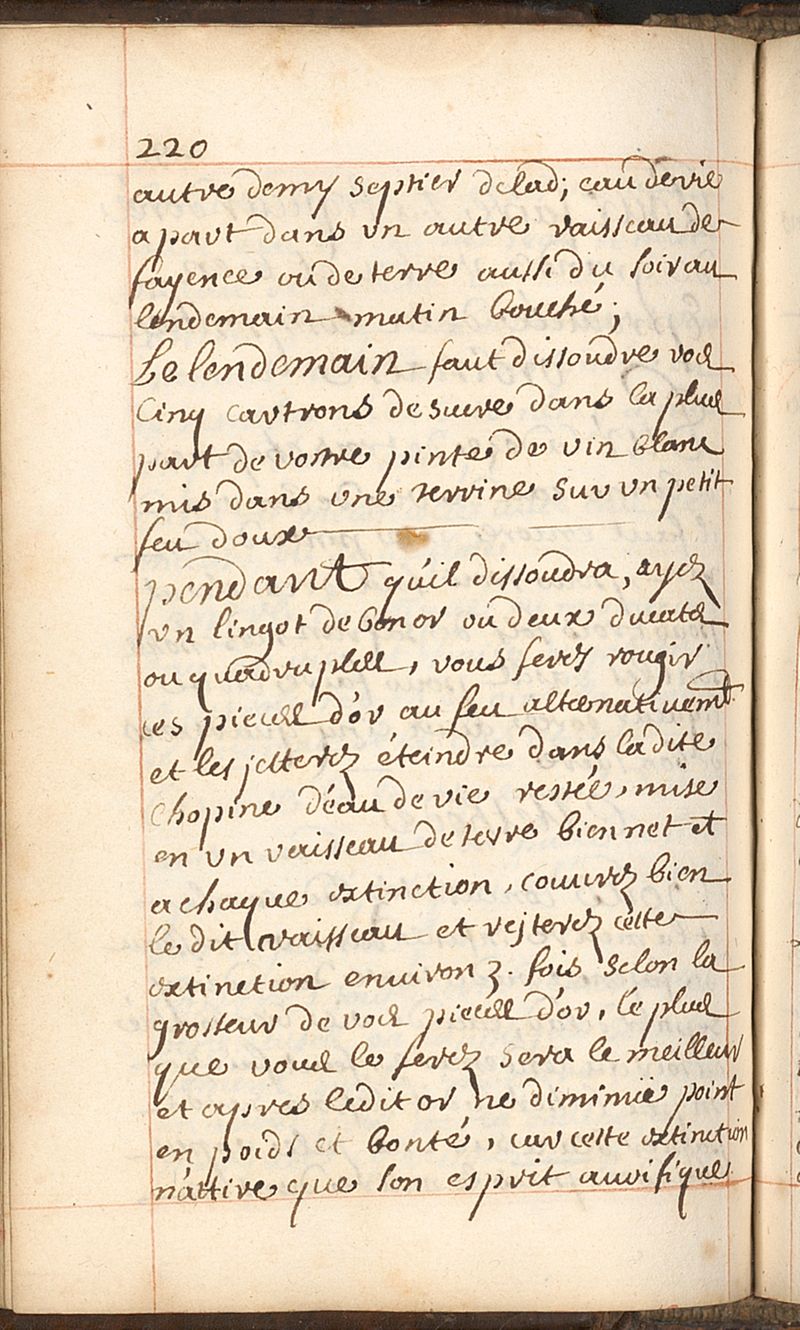 220
autre demy septier delad; eau de vie
a part dans un autre vaisseau de
fayence ou de terre aussi du soir au
lendemain matin bouché;
Le lendemain faut dissoudre vos
Cinq cartrons de sucre dans la plus
part de vostre pinte de vin blanc
mis dans une terrine sur un petit
feu doux
pendant qu'il dissoudra, ayez
un lingot de bon or ou deux ducats
ou quadruples, vous ferez rougir
ces pieces d'or au feu alternativemt
et les jetterez éteindre dans ladite
Chopine d'eau de vie restée, mise
en un vaisseau de terre bien net et
a chaque extinction, couvrez bien
le dit vaisseau et reïterez cette
extinction environ 3. fois selon la
grosseur de vos pieces d'or, le plus
que vous le ferez sera le meilleur
et apres ledit or ne diminüe point
en poids et bonté, car cette extinction
n'attire que son esprit aurifique